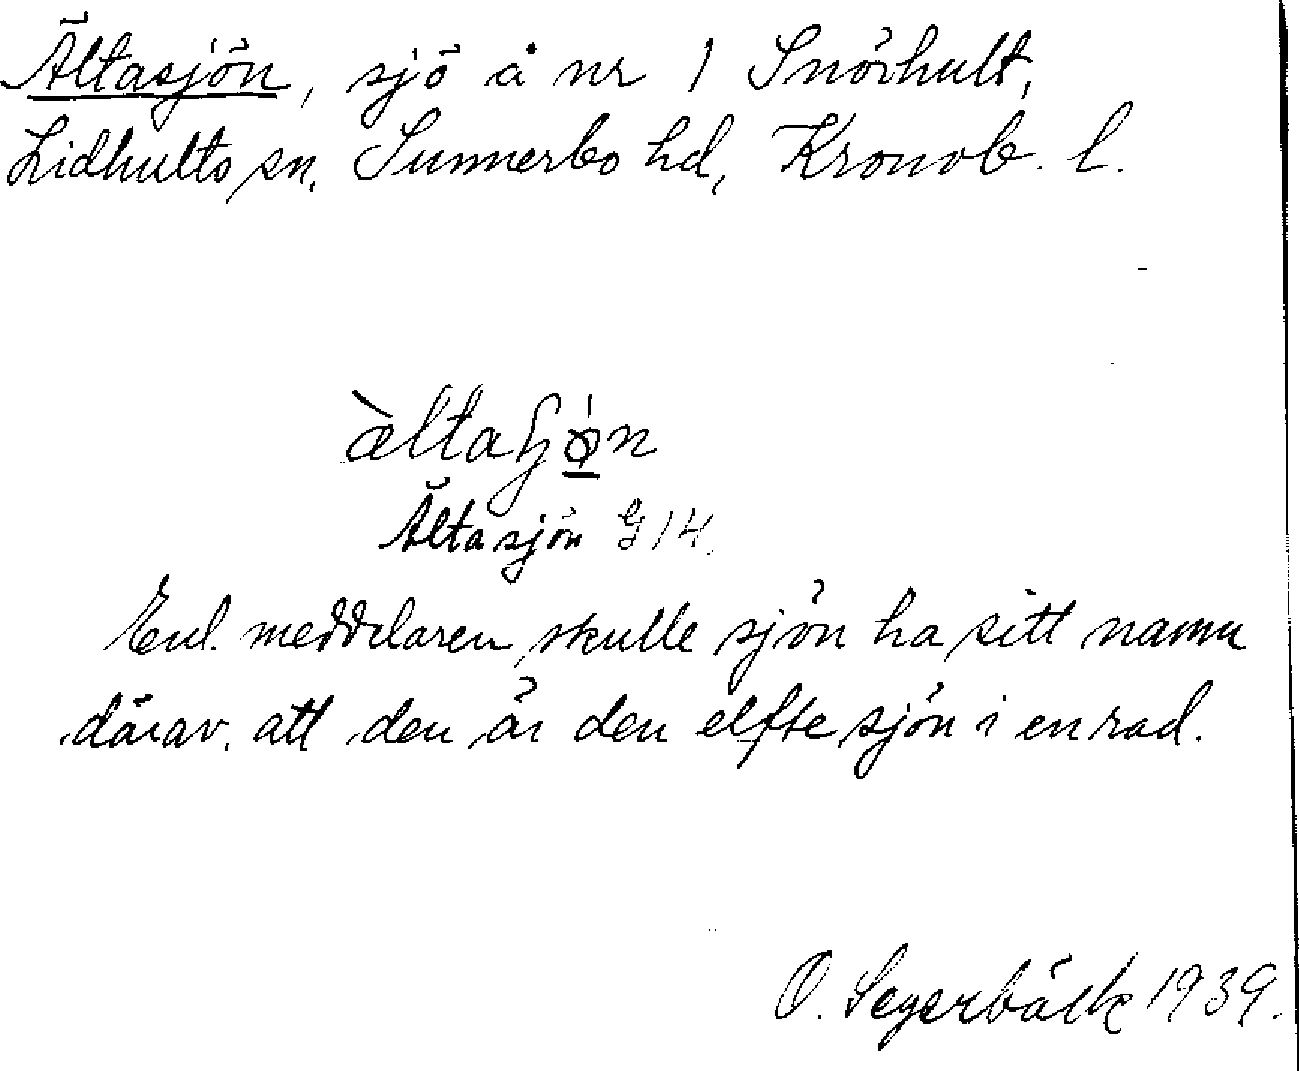 Ältasjön, sjö å nr 1 Snörhult,
Lidhults sn, Sunnerbo hd, Kronob. l.
Ältasjön G 14.
Enl. meddelaren skulle sjön ha sitt namn
därav, att den är den elfte sjön i en rad.
O. Segerbäck 1939.